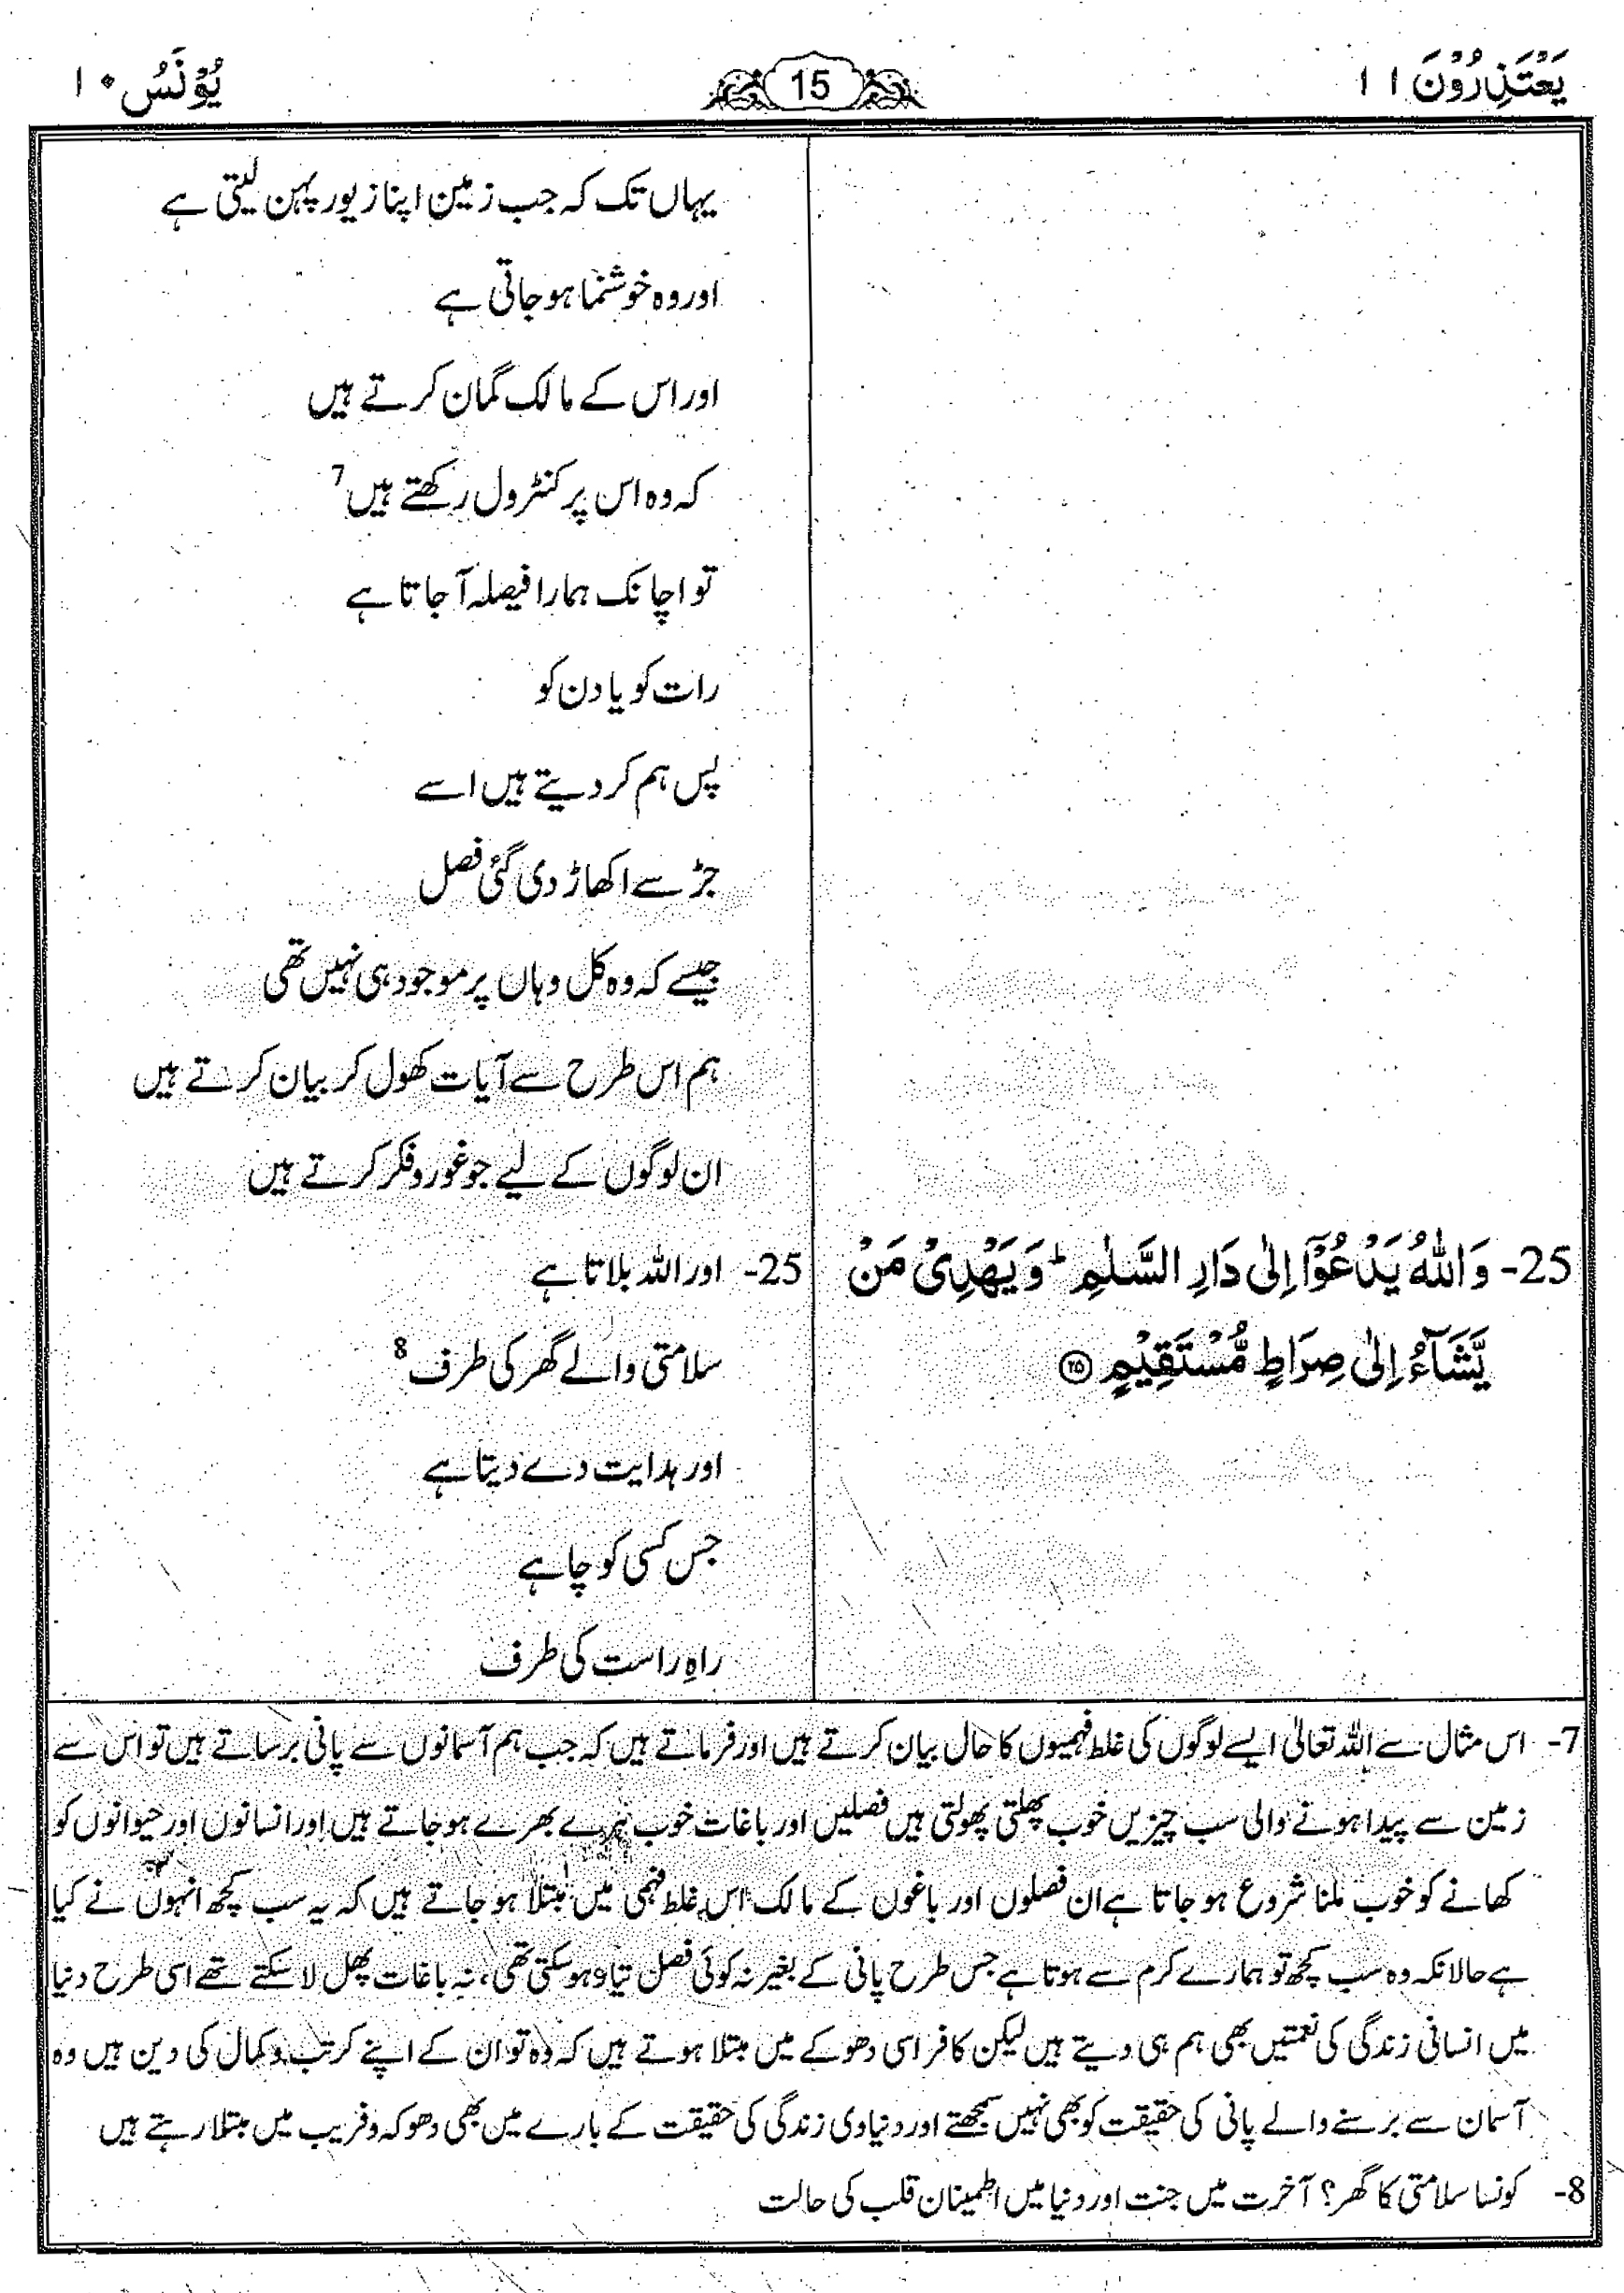 يَعْتَذِرُوْنَ ۱۱
15
يُوْنَس ۱۰
یہاں تک کہ جب زمین اپنا زیور پہن لیتی ہے
اور وہ خوشنما ہو جاتی ہے
اور اس کے مالک گمان کرتے ہیں
کہ وہ اس پر کنٹرول رکھتے ہیں 7
تو اچانک ہمارا فیصلہ آ جاتا ہے
رات کو یا دن کو
پس ہم کر دیتے ہیں اسے
جڑ سے اکھاڑ دی گئی فصل
جیسے کہ وہ کل وہاں پر موجود ہی نہیں تھی
ہم اس طرح سے آیات کھول کر بیان کرتے ہیں
ان لوگوں کے لیے جو غور و فکر کرتے ہیں
25- وَاللّٰهُ يَدْعُوْٓا اِلٰى دَارِ السَّلٰمِ ؕ وَيَهْدِىْ مَنْ
يَّشَآءُ اِلٰى صِرَاطٍ مُّسْتَقِيْمٍ ۝۲۵
25- اور اللہ بلاتا ہے
سلامتی والے گھر کی طرف 8
اور ہدایت دے دیتا ہے
جس کسی کو چاہے
راہِ راست کی طرف
7- اس مثال سے اللہ تعالیٰ ایسے لوگوں کی غلط فہمیوں کا حال بیان کرتے ہیں اور فرماتے ہیں کہ جب ہم آسمانوں سے پانی برساتے ہیں تو اس سے
زمین سے پیدا ہونے والی سب چیزیں خوب پھلتی پھولتی ہیں فصلیں اور باغات خوب ہرے بھرے ہو جاتے ہیں اور انسانوں اور حیوانوں کو
کھانے کو خوب ملنا شروع ہو جاتا ہے ان فصلوں اور باغوں کے مالک اس غلط فہمی میں مبتلا ہو جاتے ہیں کہ یہ سب کچھ انہوں نے کیا
ہے حالانکہ وہ سب کچھ تو ہمارے کرم سے ہوتا ہے جس طرح پانی کے بغیر نہ کوئی فصل ہو سکتی تھی، نہ باغات پھل لا سکتے تھے اسی طرح دنیا
میں انسانی زندگی کی نعمتیں بھی ہم ہی دیتے ہیں لیکن کافر اسی دھوکے میں مبتلا ہوتے ہیں کہ وہ تو ان کے اپنے کرتب و کمال کی دین ہیں وہ
آسمان سے برسنے والے پانی کی حقیقت کو بھی نہیں سمجھتے اور دنیاوی زندگی کی حقیقت کے بارے میں بھی دھوکہ و فریب میں مبتلا رہتے ہیں
8- کونسا سلامتی کا گھر؟ آخرت میں جنت اور دنیا میں اطمینان قلب کی حالت